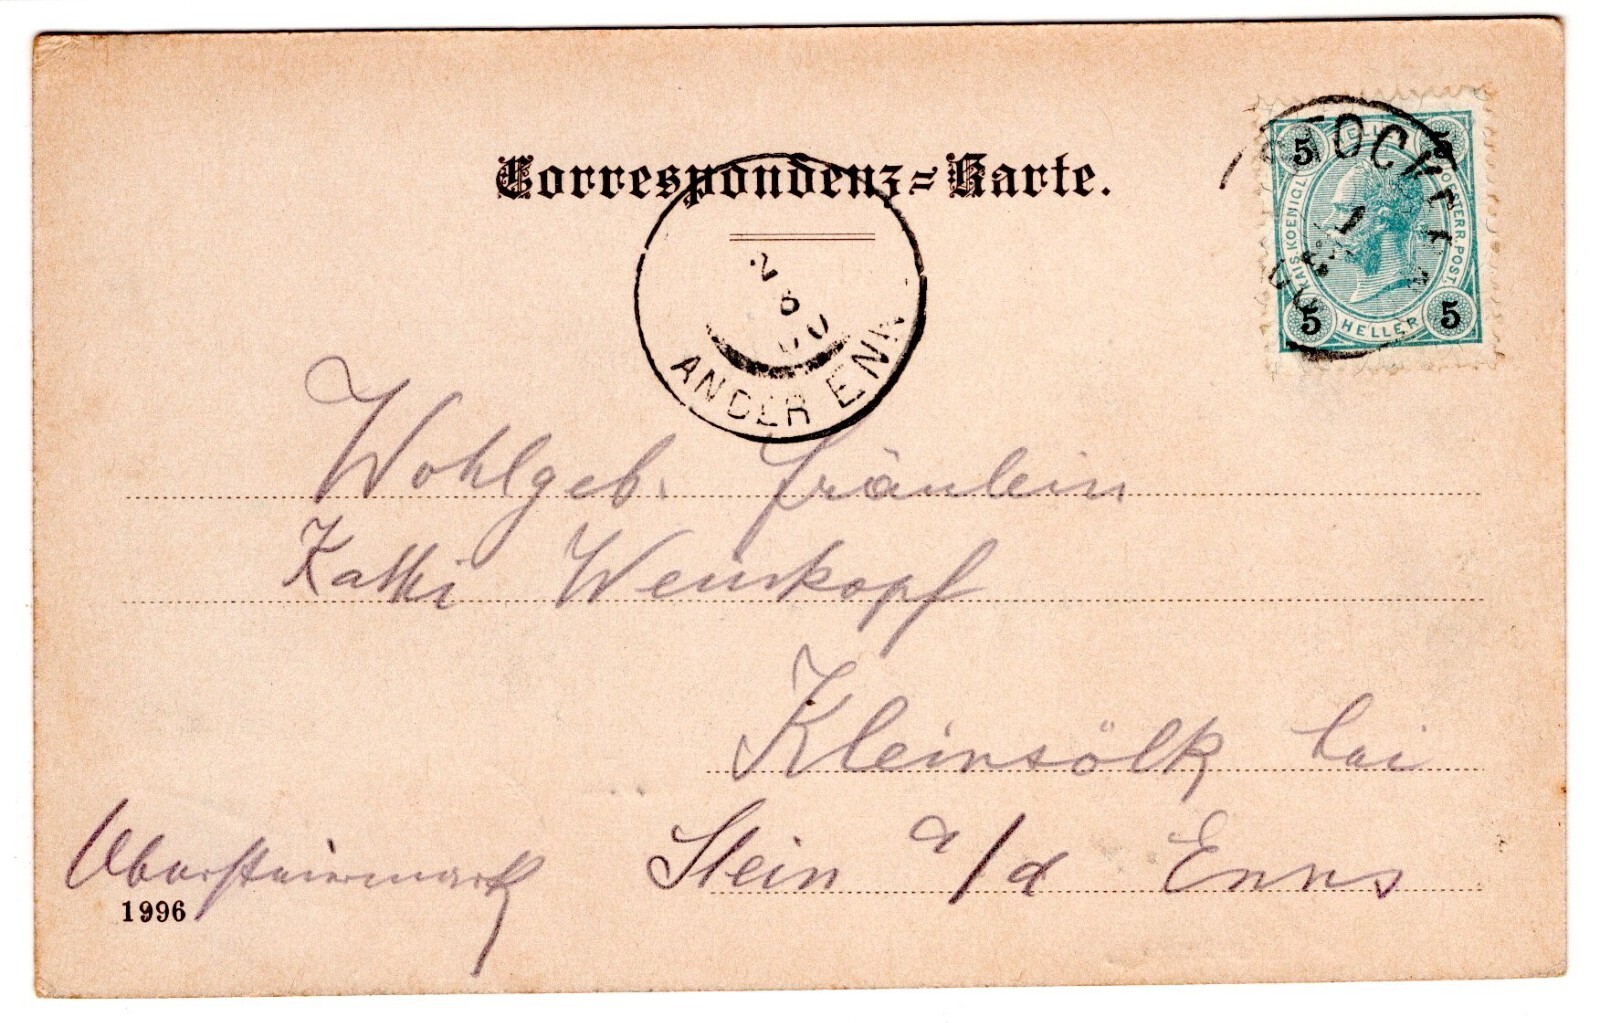 Correspondenz=Karte.
5 5
KAIS. KOENIGL. OESTERR. POST.
5 HELLER 5
2
00
AN DER ENN
Wohlgeb. Fräulein
Kathi Weinkopf
Kleinsölk bei
Stein a/d Enns
Obersteiermark
1996